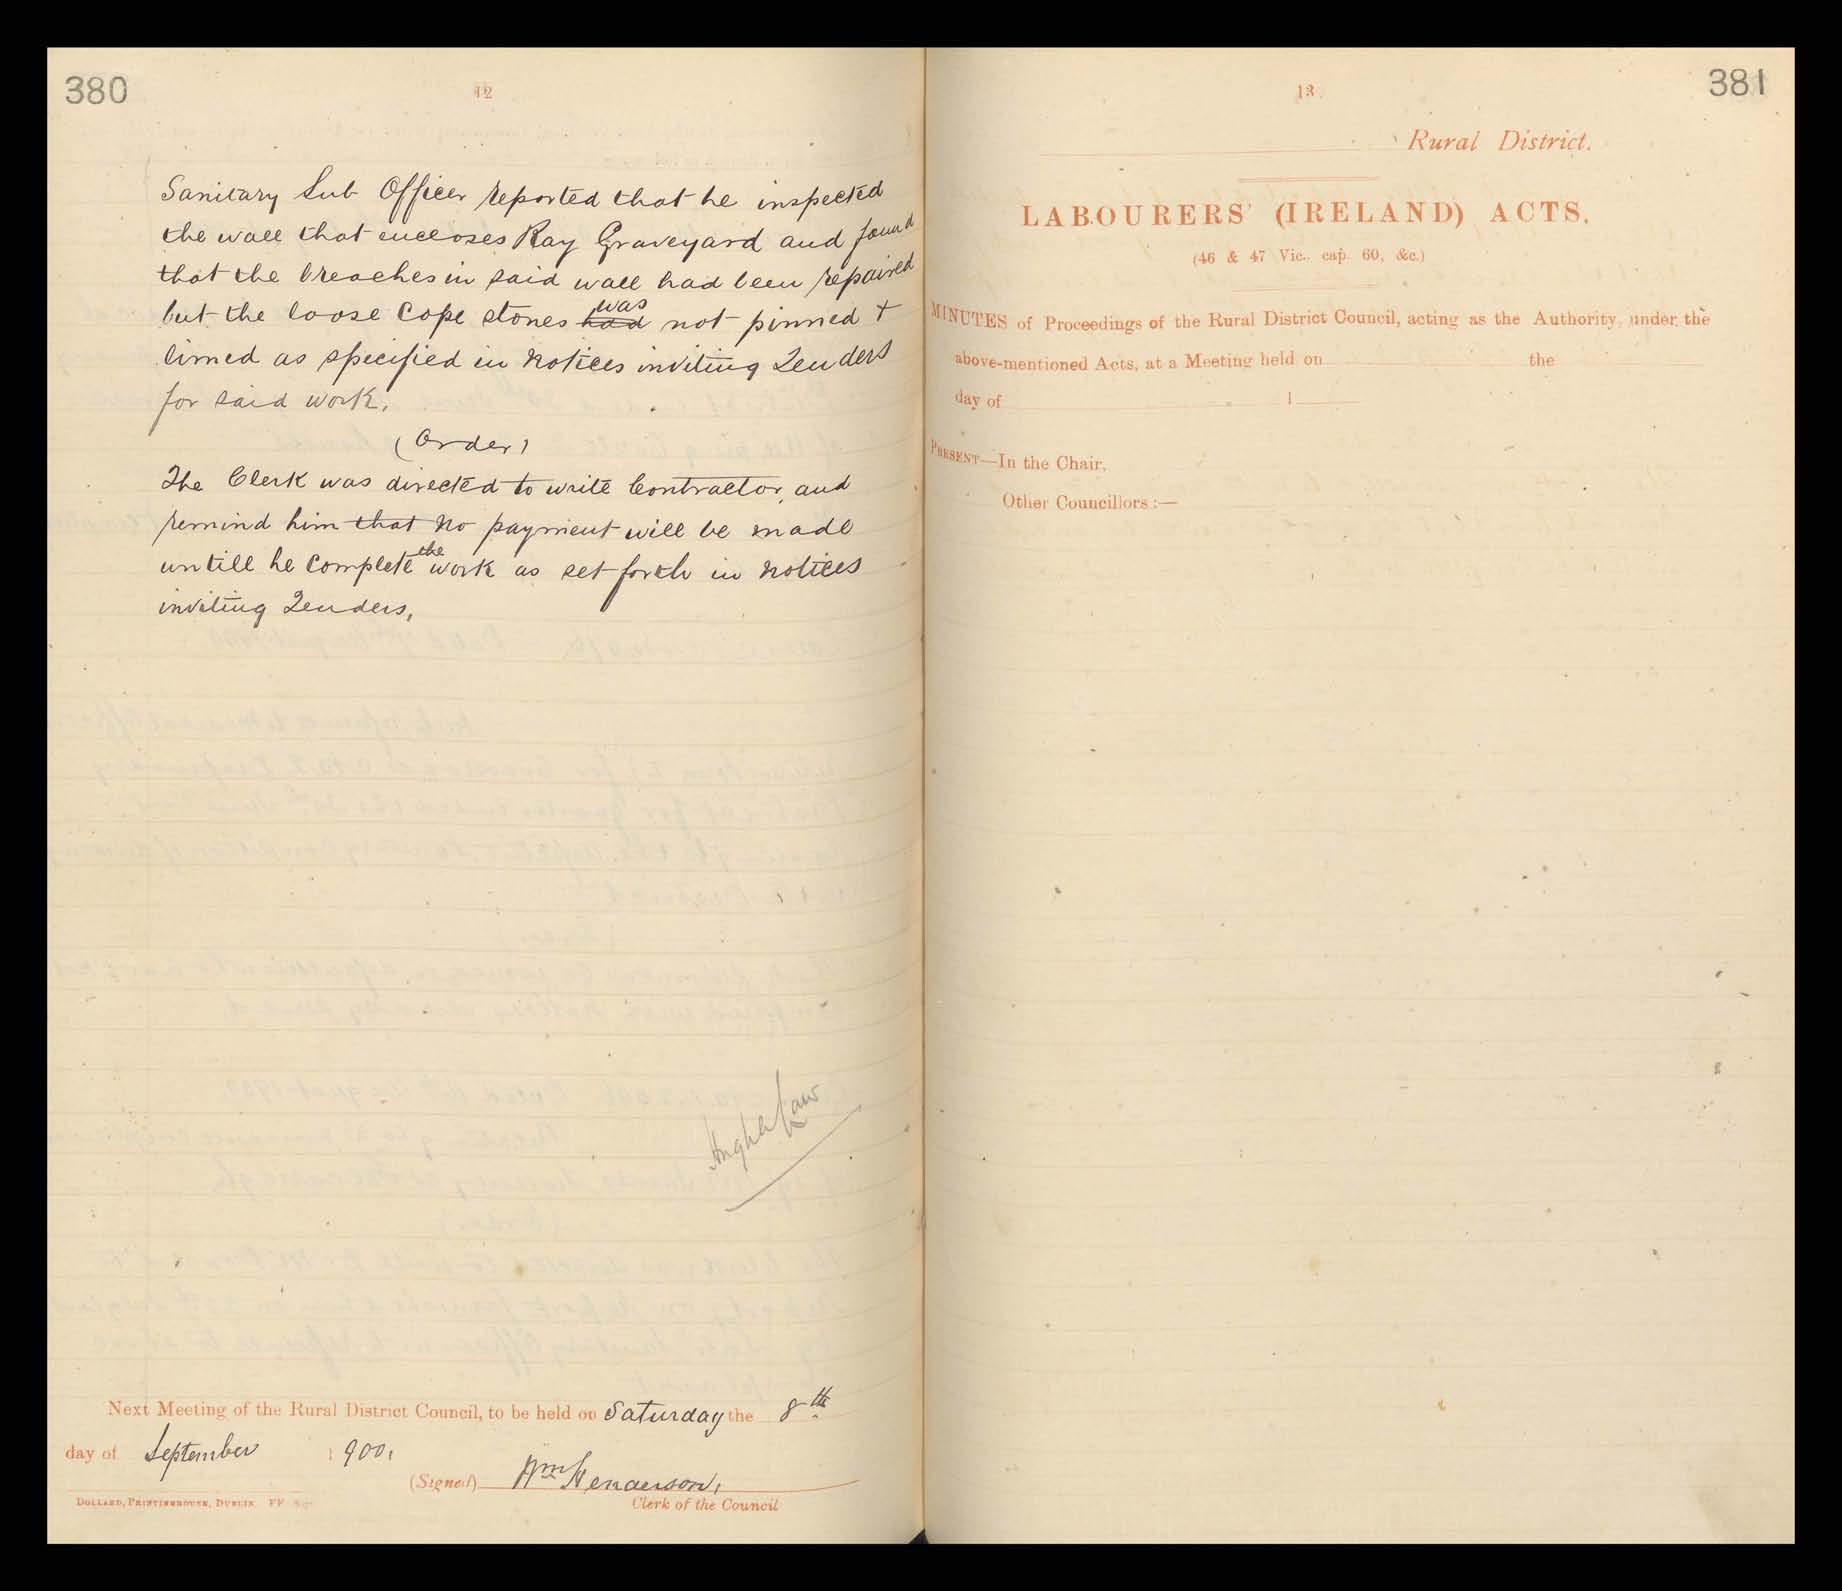 380
12
Sanitary Sub Officer reported that he inspected
the wall that encloses Ray Graveyard and found
that the breaches in said wall had been repaired
but the loose Cope stones had was not pinned +
limed as specified in Notices inviting Tenders
for said work.
(Order)
The Clerk was directed to write Contractor, and
remind him that no payment will be made
untill he Complete the work as set forth in Notices
inviting Tenders,
Hugh A Law
Next Meeting of the Rural District Council, to be held on Saturday the 8th
day of September 1900,
(Signed) Wm Henderson,
Clerk of the Council
DOLLARD, PRINTINGHOUSE, DUBLIN
381
13
Rural District.
LABOURERS' (IRELAND) ACTS.
(46 & 47 Vic., cap. 60, &c.)
MINUTES of Proceedings of the Rural District Council, acting as the Authority, under the
above-mentioned Acts, at a Meeting held on the
day of 1
PRESENT—In the Chair,
Other Councillors :—